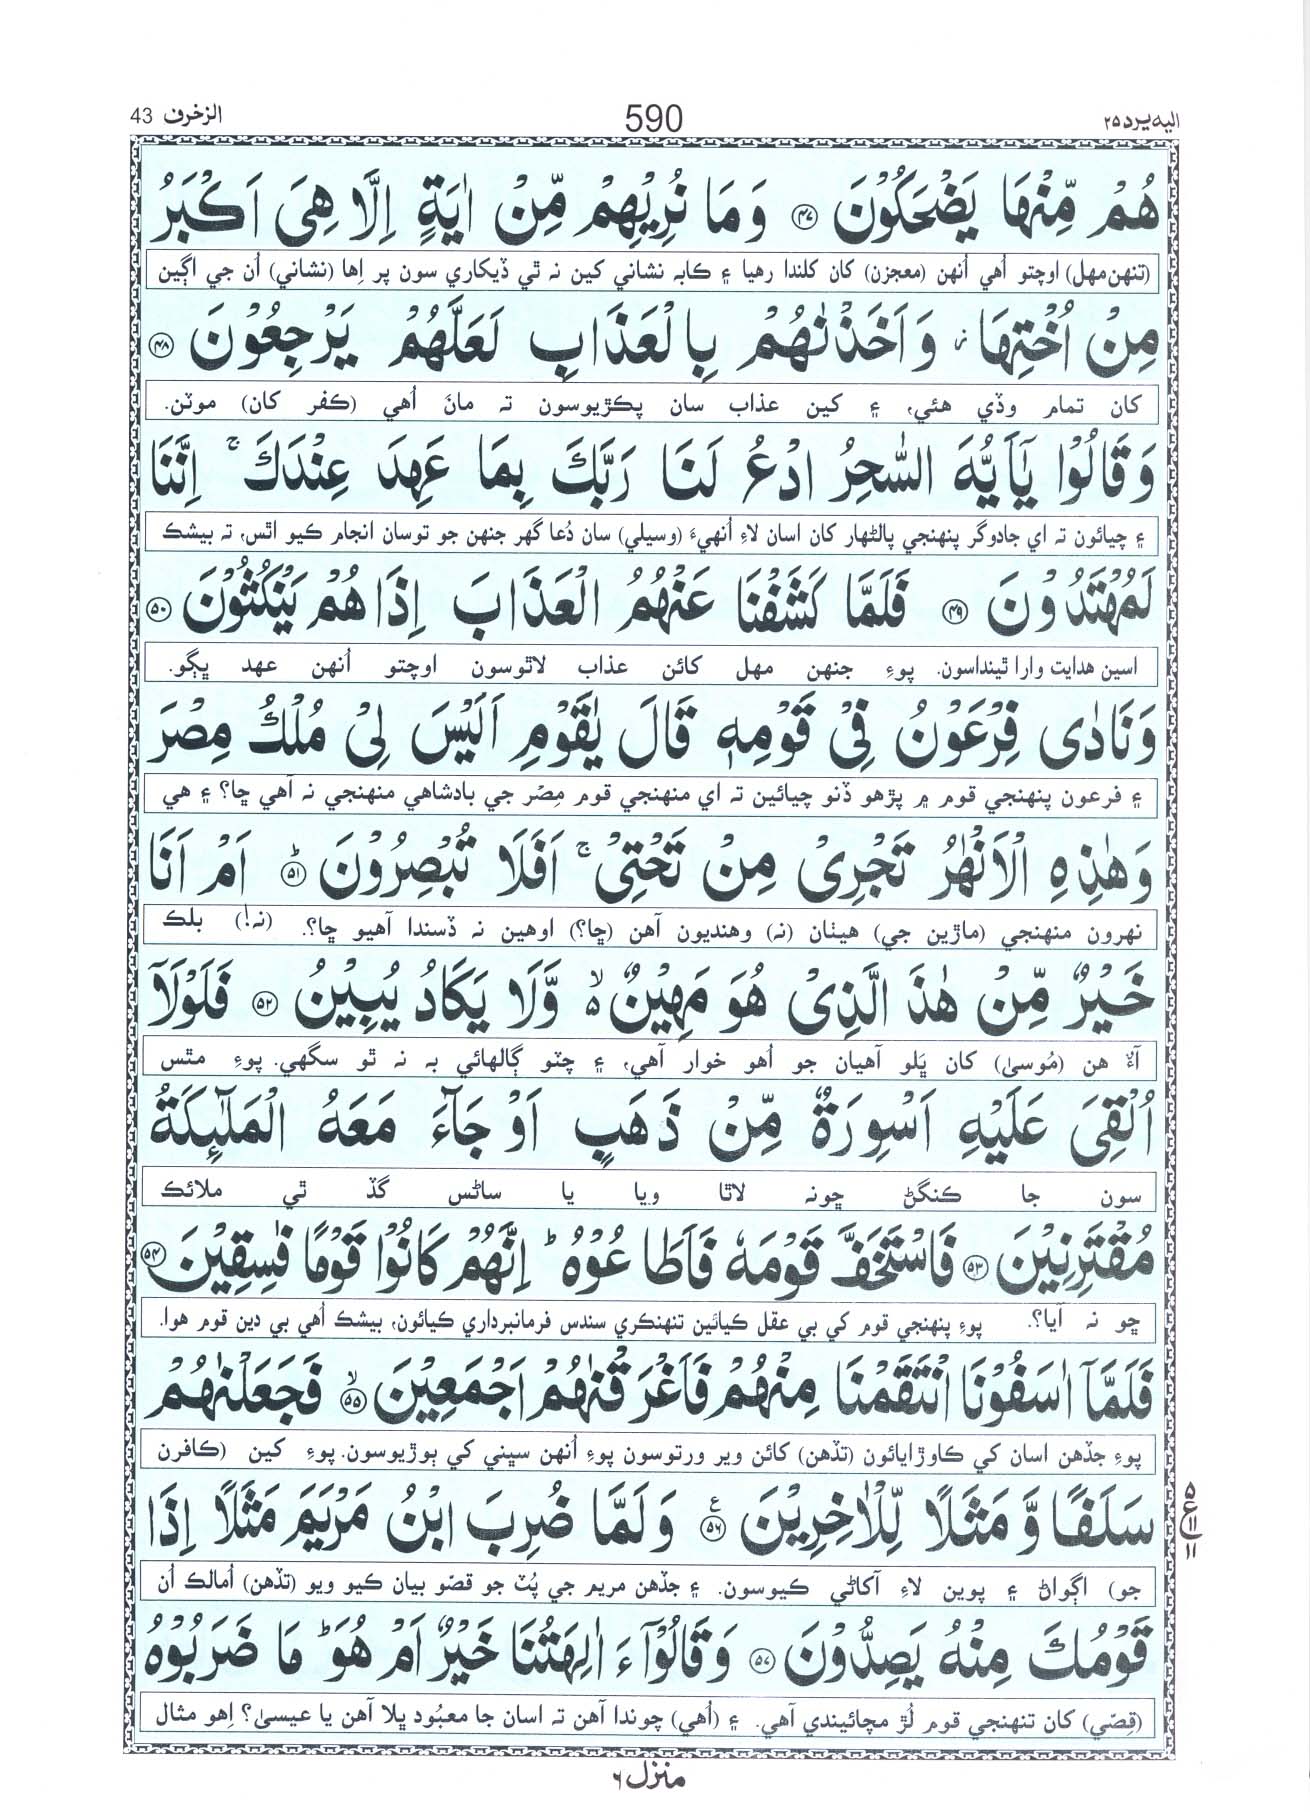 اليه يرد ٢٥
590
الزخرف 43
هُمْ مِّنْهَا يَضْحَكُوْنَ ﴿۴۷﴾ وَ مَا نُرِيْهِمْ مِّنْ اٰيَةٍ اِلَّا هِىَ اَكْبَرُ
(تنهن مهل) اوچتو اُهي اُنهن (معجزن) کان کلندا رهيا ۽ ڪابہ نشاني کين نہ ٿي ڏيکاري سون پر اِها (نشاني) اُن جي اڳين
مِنْ اُخْتِهَا ؗ وَ اَخَذْنٰهُمْ بِالْعَذَابِ لَعَلَّهُمْ يَرْجِعُوْنَ ﴿۴۸﴾
کان تمام وڏي هئي، ۽ کين عذاب سان پڪڙيوسون تہ مانَ اُهي (ڪفر کان) موٽن.
وَ قَالُوْا يٰۤاَيُّهَ السّٰحِرُ ادْعُ لَنَا رَبَّكَ بِمَا عَهِدَ عِنْدَكَ ۚ اِنَّنَا
۽ چيائون تہ اي جادوگر پنهنجي پالڻهار کان اسان لاءِ اُنهيءَ (وسيلي) سان دُعا گهر جنهن جو توسان انجام ڪيو اٿس، تہ بيشڪ
لَمُهْتَدُوْنَ ﴿۴۹﴾ فَلَمَّا كَشَفْنَا عَنْهُمُ الْعَذَابَ اِذَا هُمْ يَنْكُثُوْنَ ﴿۵۰﴾
اسين هدايت وارا ٿينداسون. پوءِ جنهن مهل کائن عذاب لاٿوسون اوچتو اُنهن عهد ڀڳو.
وَ نَادٰى فِرْعَوْنُ فِىْ قَوْمِهٖ قَالَ يٰقَوْمِ اَلَيْسَ لِىْ مُلْكُ مِصْرَ
۽ فرعون پنهنجي قوم ۾ پڙهو ڏنو چيائين تہ اي منهنجي قوم مِصْر جي بادشاهي منهنجي نہ آهي ڇا؟ ۽ هي
وَ هٰذِهِ الْاَنْهٰرُ تَجْرِىْ مِنْ تَحْتِىْ ۚ اَفَلَا تُبْصِرُوْنَ ﴿۵۱﴾ؕ اَمْ اَنَا
نهرون منهنجي (ماڙين جي) هيٺان (نہ) وهنديون آهن (ڇا؟) اوهين نہ ڏسندا آهيو ڇا؟. (نہ!) بلڪ
خَيْرٌ مِّنْ هٰذَا الَّذِىْ هُوَ مَهِيْنٌ ۙ۬ وَّلَا يَكَادُ يُبِيْنُ ﴿۵۲﴾ فَلَوْلَاۤ
آءٌ هن (مُوسىٰ) کان ڀَلو آهيان جو اُهو خوار آهي، ۽ چٽو ڳالهائي بہ نہ ٿو سگهي. پوءِ مٿس
اُلْقِىَ عَلَيْهِ اَسْوِرَةٌ مِّنْ ذَهَبٍ اَوْ جَآءَ مَعَهُ الْمَلٰٓئِكَةُ
سون جا ڪنگڻ ڇونہ لاٿا ويا يا ساڻس گڏ ٿي ملائڪ
مُقْتَرِنِيْنَ ﴿۵۳﴾ فَاسْتَخَفَّ قَوْمَهٗ فَاَطَاعُوْهُ ؕ اِنَّهُمْ كَانُوْا قَوْمًا فٰسِقِيْنَ ﴿۵۴﴾
ڇو نہ آيا؟. پوءِ پنهنجي قوم کي بي عقل ڪيائين تنهنڪري سندس فرمانبرداري ڪيائون، بيشڪ اُهي بي دين قوم هوا.
فَلَمَّاۤ اٰسَفُوْنَا انْتَقَمْنَا مِنْهُمْ فَاَغْرَقْنٰهُمْ اَجْمَعِيْنَ ﴿۵۵﴾ۙ فَجَعَلْنٰهُمْ
پوءِ جڏهن اسان کي ڪاوڙايائون (تڏهن) کائن وير ورتوسون پوءِ اُنهن سڀني کي ٻوڙيوسون. پوءِ کين (ڪافرن
سَلَفًا وَّ مَثَلًا لِّلْاٰخِرِيْنَ ﴿۵۶﴾ع وَ لَمَّا ضُرِبَ ابْنُ مَرْيَمَ مَثَلًا اِذَا
جو) اڳواڻ ۽ پوين لاءِ آکاڻي ڪيوسون. ۽ جڏهن مريم جي پُٽ جو قصّو بيان ڪيو ويو (تڏهن) اُمالڪ اُن
قَوْمُكَ مِنْهُ يَصِدُّوْنَ ﴿۵۷﴾ وَ قَالُوْۤا ءَاٰلِهَتُنَا خَيْرٌ اَمْ هُوَ ؕ مَا ضَرَبُوْهُ
(قصّي) کان تنهنجي قوم لُڙ مچائيندي آهي. ۽ (اُهي) چوندا آهن تہ اسان جا معبُود ڀلا آهن يا عيسىٰ؟ اِهو مثال
۵
ع ۱۱
۱۱
منزل ۶